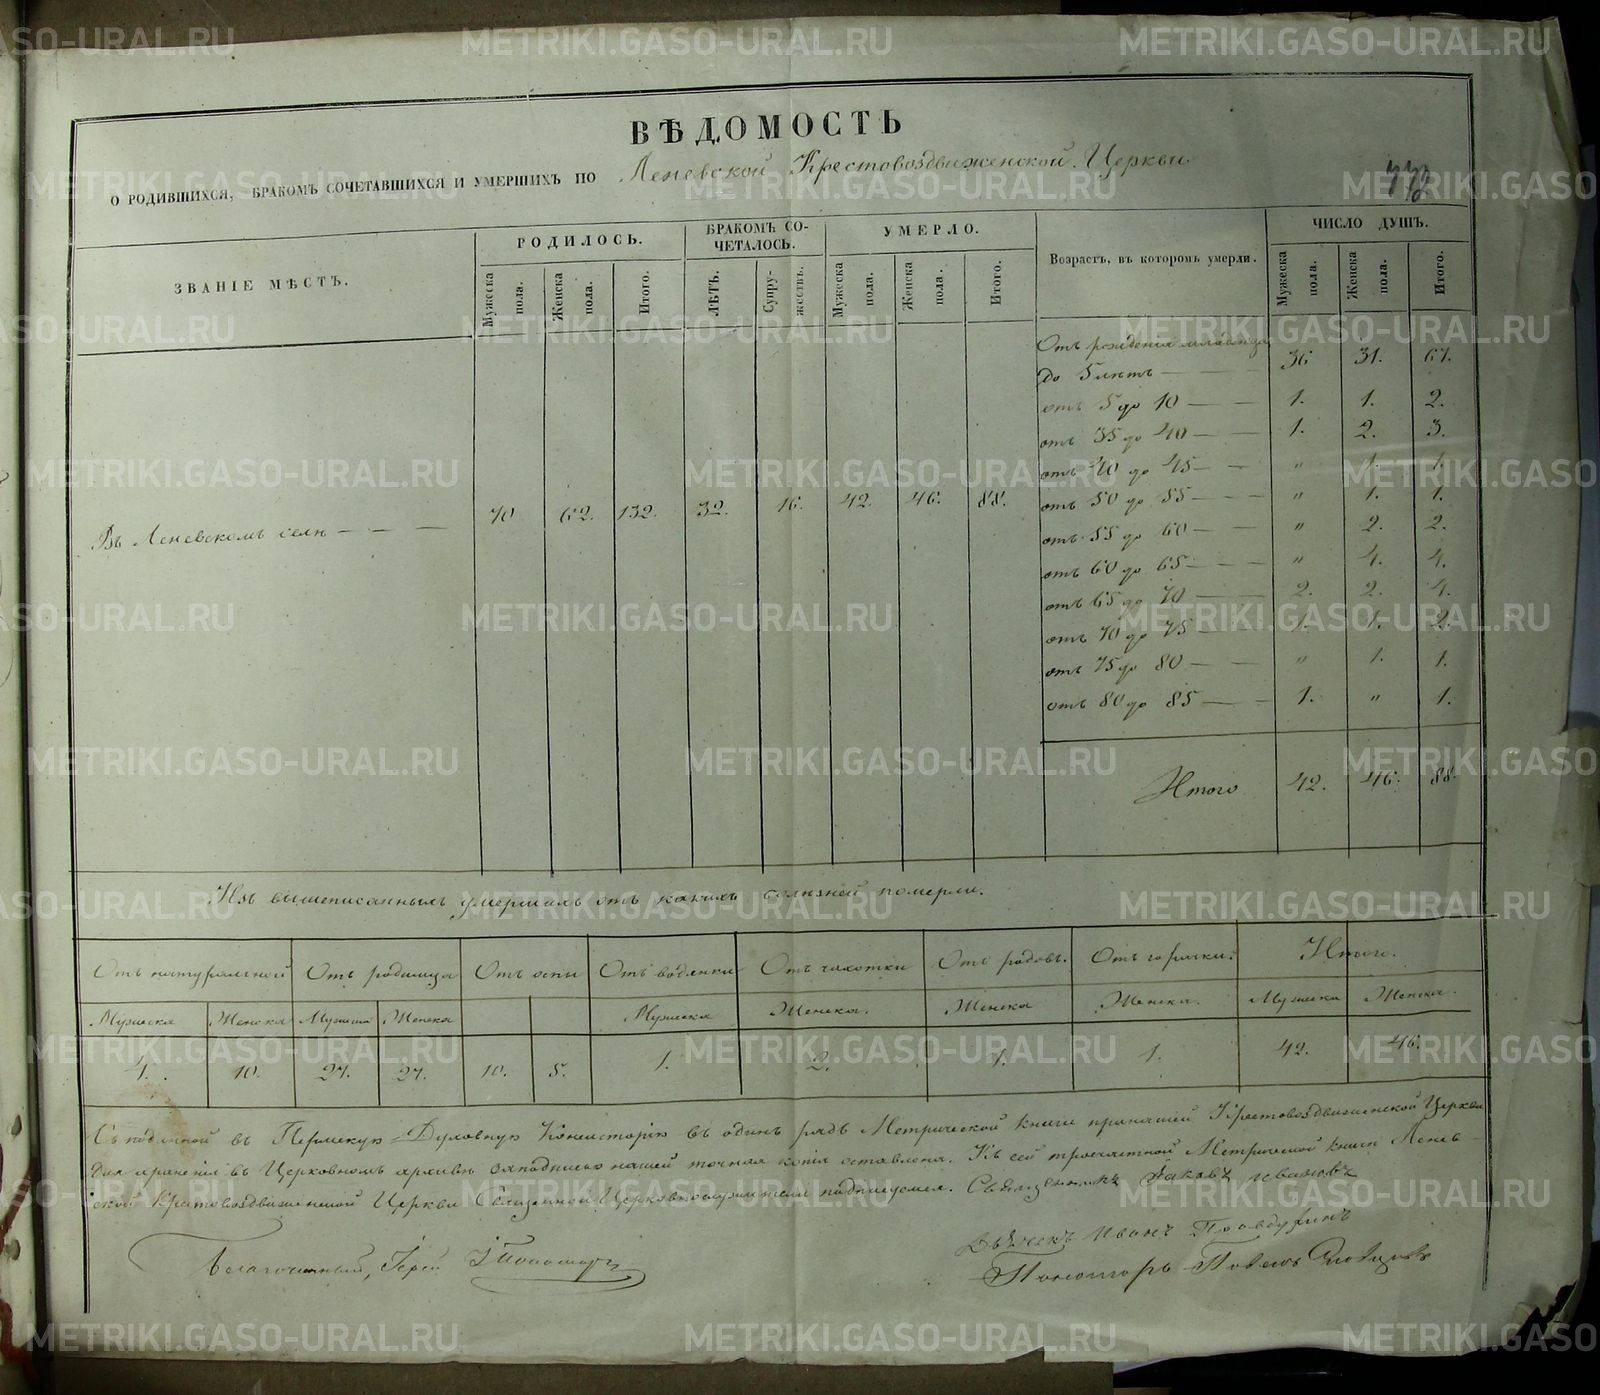 ВѢДОМОСТЬ
О РОДИВШИХСЯ, БРАКОМЪ СОЧЕТАВШИХСЯ И УМЕРШИХЪ ПО Леневской Крестовоздвиженской Церкви
ЗВАНІЕ МѢСТЪ.
РОДИЛОСЬ.
Мужеска пола.
Женска пола.
Итого.
БРАКОМЪ СО-
ЧЕТАЛОСЬ.
ЛѢТЪ.
Супру-
жествъ.
УМЕРЛО.
Мужеска пола.
Женска пола.
Итого.
Возрастъ, въ которомъ умерли.
ЧИСЛО ДУШЪ.
Мужеска пола.
Женска пола.
Итого.
Въ Леневскомъ селѣ — — — 70 62. 132. 32. 16. 42. 46. 88.
Отъ рожденія младенца
до 5 лѣтъ — — — 36 31. 67.
отъ 5 до 10 — — 1. 1. 2.
отъ 35 до 40 — — 1. 2. 3.
отъ 40 до 45 — — " 1. 1.
отъ 50 до 55 — — " 1. 1.
отъ 55 до 60 — — " 2. 2.
отъ 60 до 65 — — " 4. 4.
отъ 65 до 70 — — 2. 2. 4.
отъ 70 до 75 — — 1. 1. 2.
отъ 75 до 80 — — " 1. 1.
отъ 80 до 85 — — 1. " 1.
Итого 42. 46. 88.
Изъ вышеписанныхъ умершихъ отъ какихъ болѣзней померли.
Отъ натуральной Отъ родимца Отъ оспы Отъ водянки Отъ чахотки Отъ родовъ. Отъ горячки. Итого.
Мужеска Женска Мужеска Женска Мужеска Женска. Женска Женска. Мужеска Женска.
4. 10. 27. 27. 10. 5. 1. 2. 1. 1. 42. 46.
Съ поданной въ Пермскую Духовную Консисторію въ одинъ рядъ Метрической книги приходской Крестовоздвиженской Церкви
для храненія въ Церковномъ архивѣ за подписью нашей точная копія оставлена. Къ сей троечастной Метрической книги Ленев-
ской Крестовоздвиженской Церкви Священной Церковнослужители подписуемся. Священникъ Іаковъ Ивановъ
Дьячекъ Иванъ Правдухинъ
Благочинный, Іерей
Пономарь Павелъ Словцовъ
METRIKI.GASO-URAL.RU